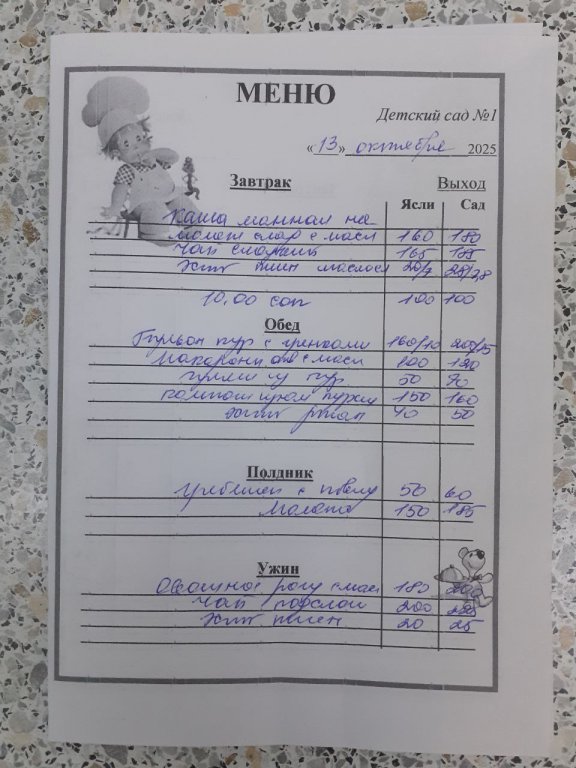 МЕНЮ
Детский сад №1
«13» октября 2025
Завтрак Выход
Ясли Сад
Каша манная на
молоке слад с масл 160 180
Чай сладкий 165 185
Хлеб пшен маслом 20/7
10,00 сок 100 100
Обед
Бульон кур с гренками 160/10
Макароны отв с масл 100 120
гуляш кур 50 70
компот изюм 150 160
хлеб ржан 40 50
Полдник
с повид 50 60
Молоко 150 185
Ужин
Овощное рагу с масл 180
Чай подслащ 200
Хлеб пшен 20 25